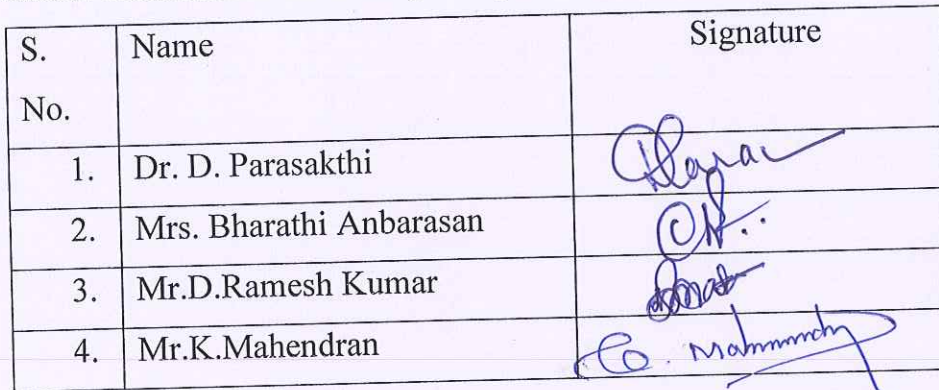 S. No. Name Signature
1. Dr. D. Parasakthi
2. Mrs. Bharathi Anbarasan
3. Mr.D.Ramesh Kumar
4. Mr.K.Mahendran